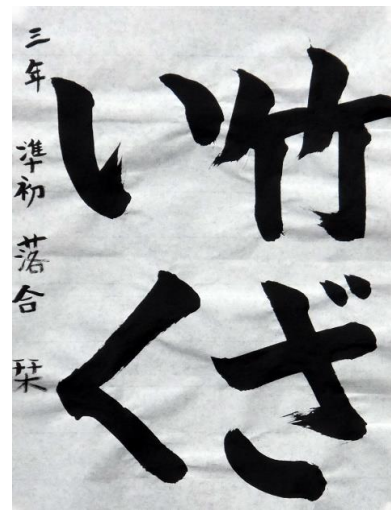 竹ざ
いく
三年 準初 落合 栞